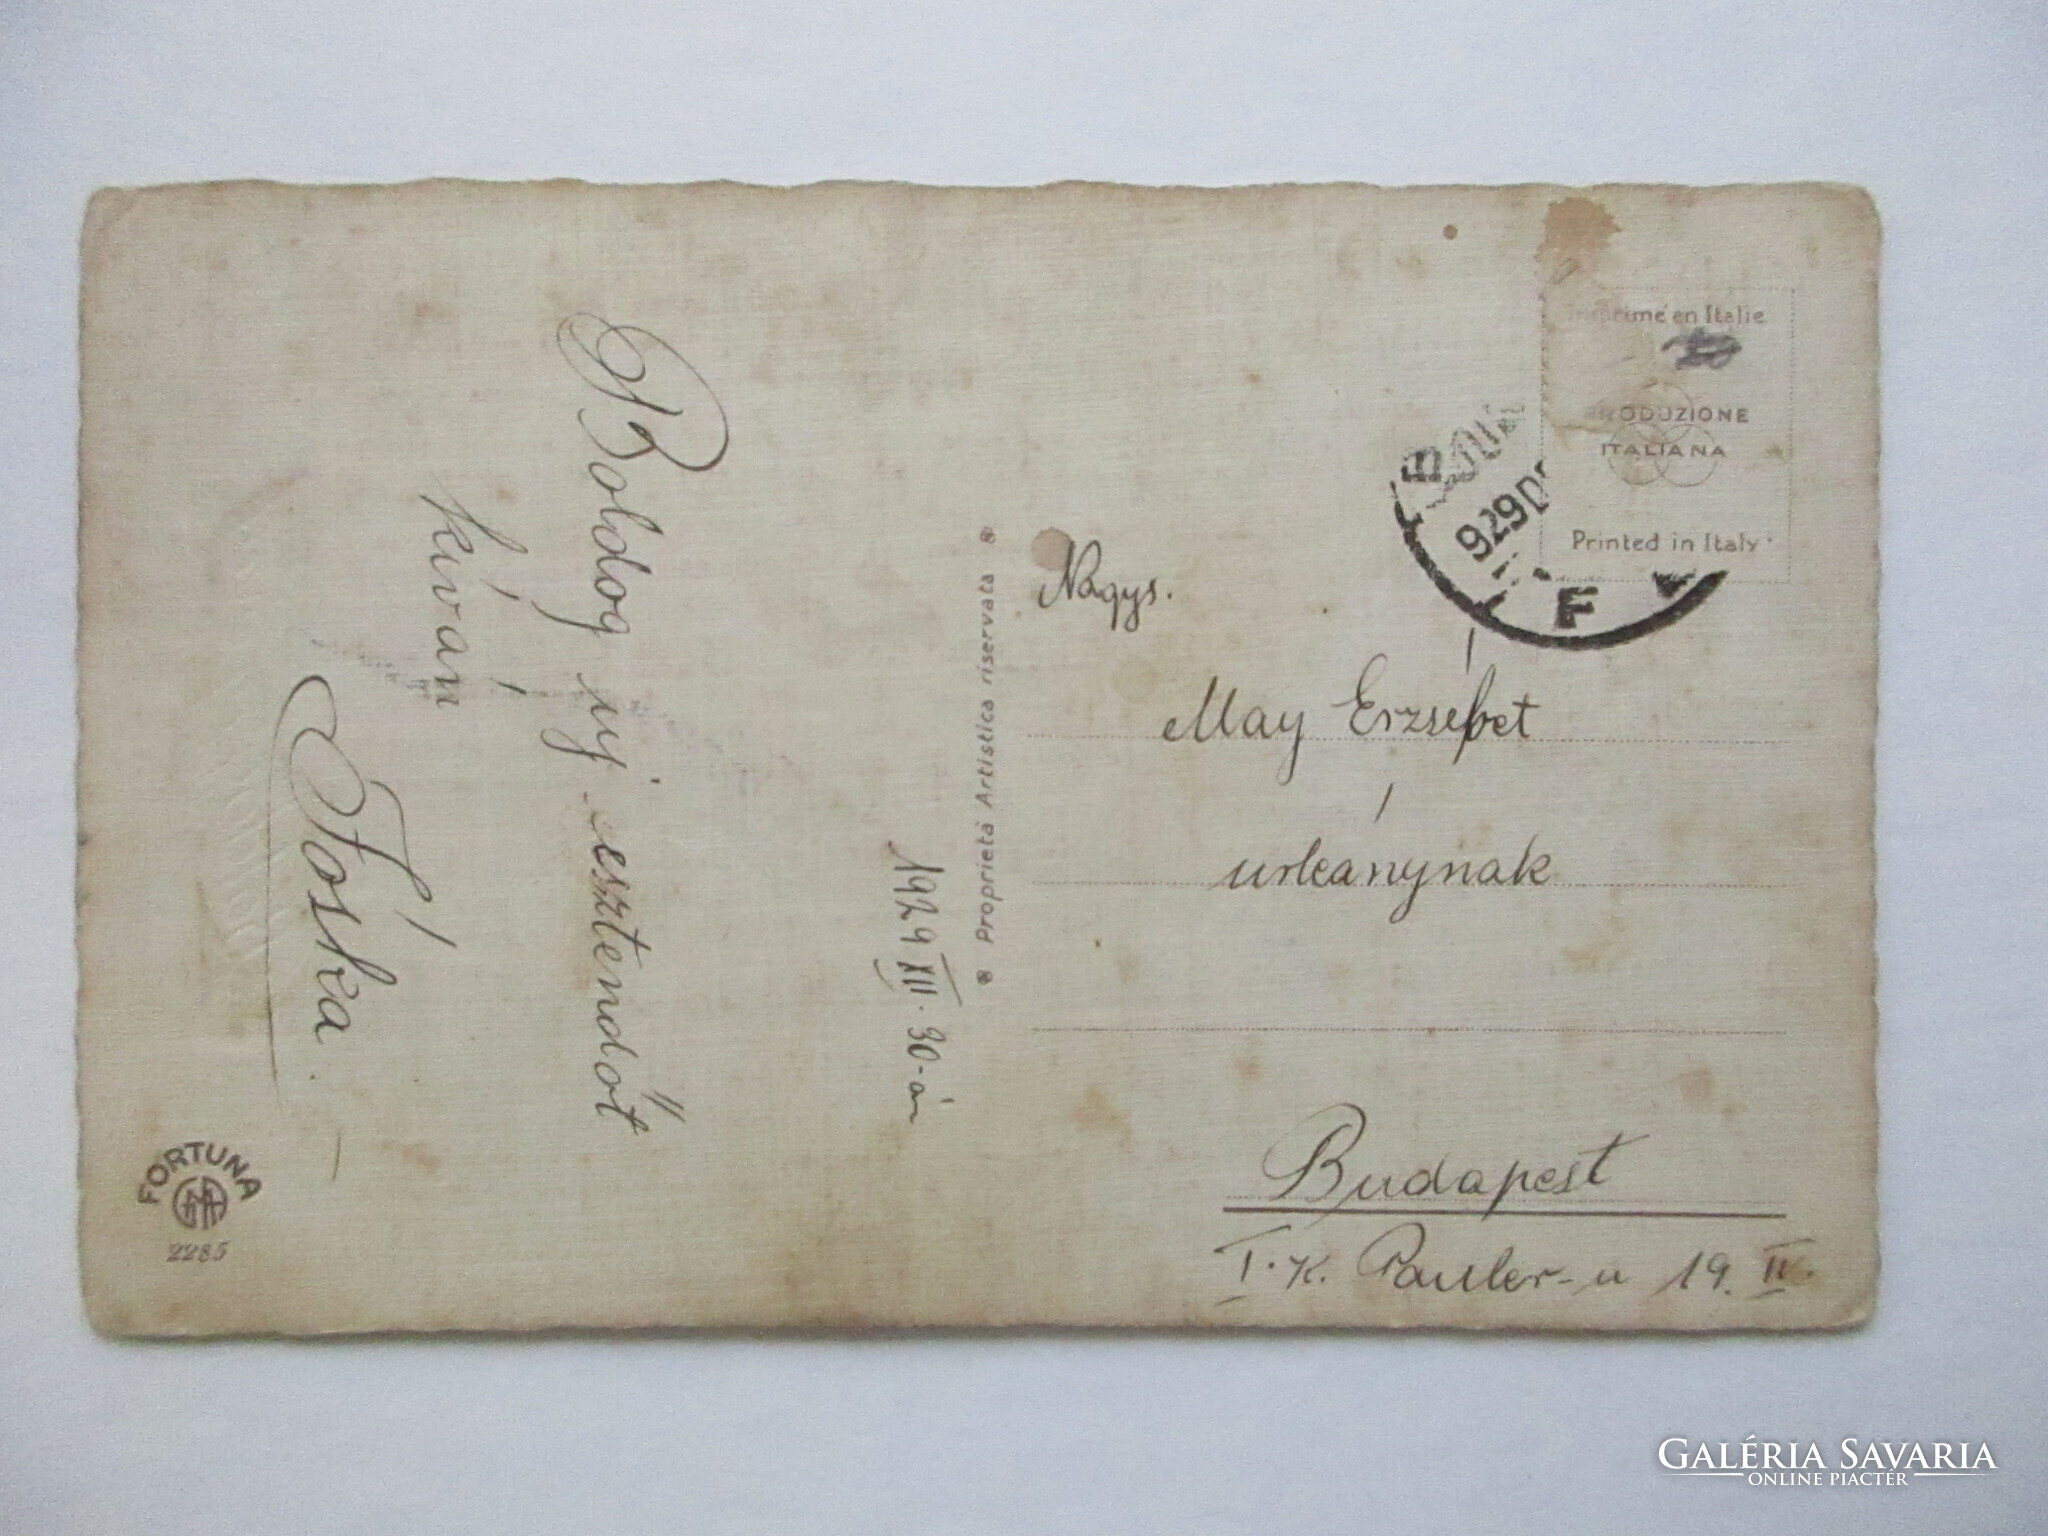 Boldog uj esztendőt
kíván
Jóska
1929 XII. 30-án
Proprietà Artistica riservata
FORTUNA
2285
Imprimé en Italie
PRODUZIONE
ITALIANA
Printed in Italy
929 D
F
Nagys.
May Erzsébet
urleánynak
Budapest
I. K. Pauler-u 19. IV.
GALÉRIA SAVARIA
ONLINE PIACTÉR